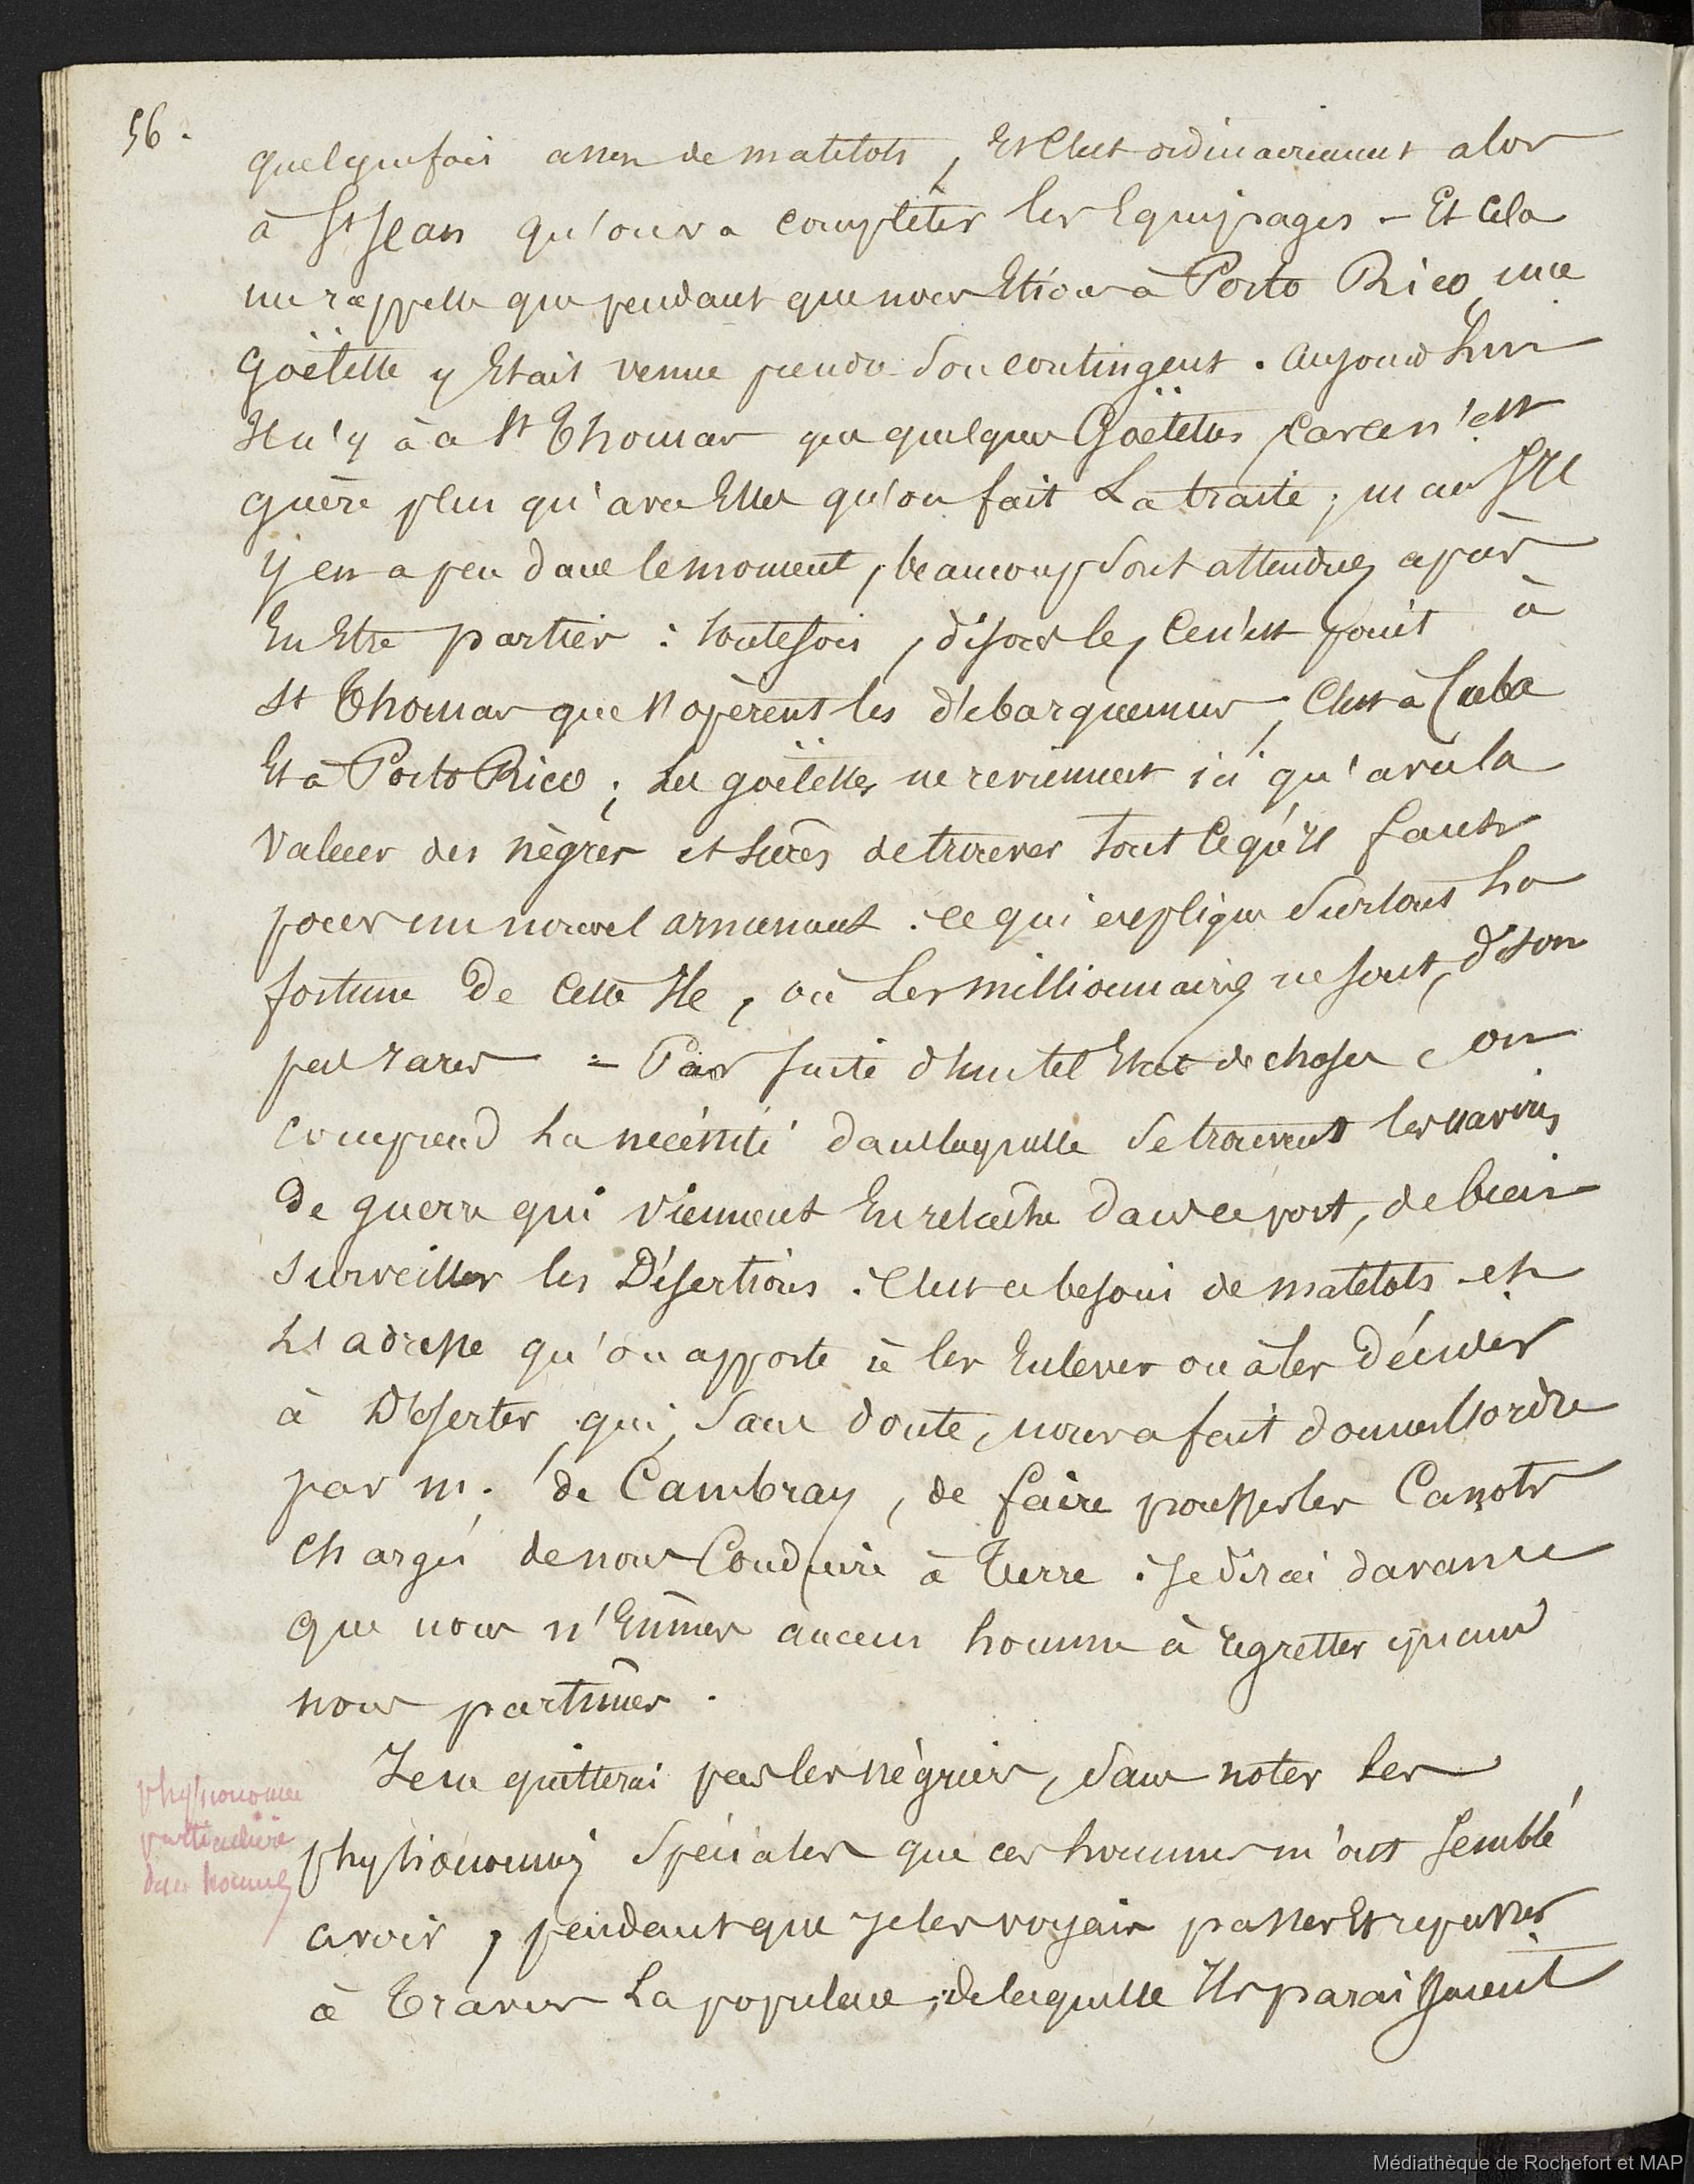 56.
quelquefois assez de matelots, Et C'est ordinairement alors
à St Jean qu'on va compléter les Equipages - Et Cela
me rappelle que pendant que nous Etions à Porto Rico, une
Goëlette y Etait venue prendre Son contingent. Aujourd'hui
Il n'y à a St Thomas que quelques Goëlettes, car ce n'est
guère plus qu'avec Elles qu'on fait La traite; mais S'Il
y en a peu dans le moment, beaucoup Sont attendues après
En Etre parties: toutefois, disons le, Ce n'est point à
St Thomas que S'opèrent les débarquements, C'est à Cuba
Et à Porto Rico; Les goëlettes ne reviennent ici qu'avec la
Valeur des nègres et Sûres de trouver tout Ce qu'Il faut
pour un nouvel armement. Ce qui explique Surtout La
fortune De Cette Ile, où Les millionnaires ne Sont, dit on
pas rares = Par Suite d'un tel Etat de choses, on
comprend La nécéssité dans laquelle Se trouvent les navires
De guerre qui viennent En relâche dans ce port, de bien
Surveiller les Désertions. C'est ce besoin de matelots et
L'adresse qu'on apporte à les Enlever ou à les Décider
à Déserter qui, Sans doute, nous a fait donner l'ordre
par M. de Cambray, de faire pousser les Canots
Chargés de nous Conduire à Terre. Je dirai d'avance
que nous n'Eûmes aucun homme à regretter quand
nous partîmes.
Je ne quitterai pas les négriers, Sans noter Les
physionomies Spéciales que ces hommes m'ont Semblé
avoir, pendant que je les voyais passer Et repasser
à Travers La populace, de laquelle Ils paraissaient
physionomie
particulière
de ces hommes
Médiathèque de Rochefort et MAP